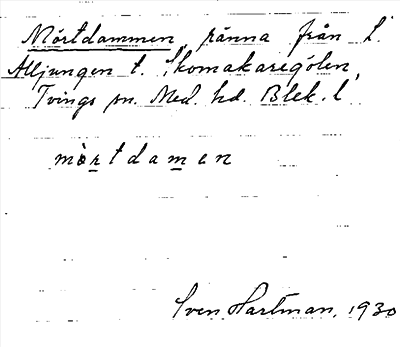 Mörtdammen, ränna från L.
Alljungen t. Skomakaregölen,
Tvings sn. Med. hd. Blek. l
mördamen
Sven Hartman, 1930